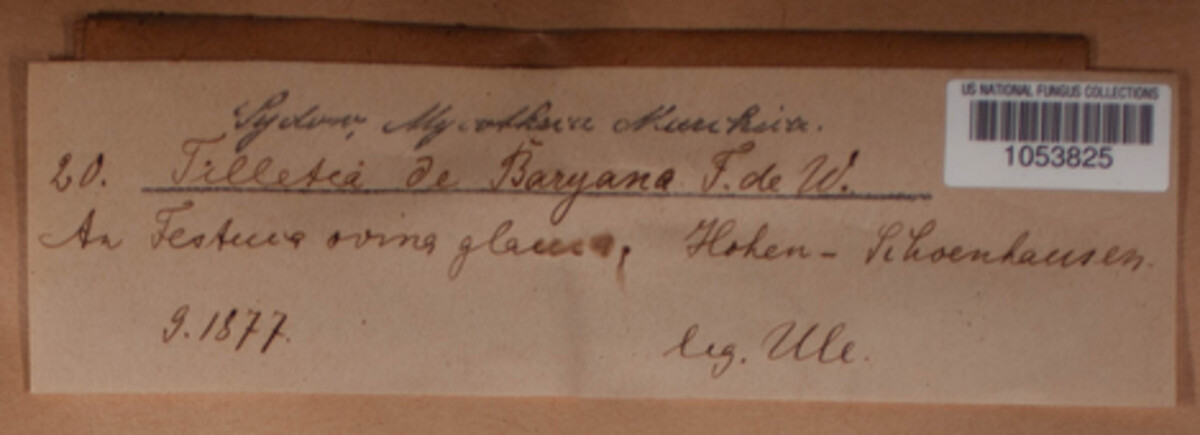 Sydow, Mycotheca Marchica.
20. Tilletia de Baryana F. de W.
An Festuca ovina glauca, Hohen-Schoenhausen.
9. 1877. leg. Ule.
US NATIONAL FUNGUS COLLECTIONS
1053825